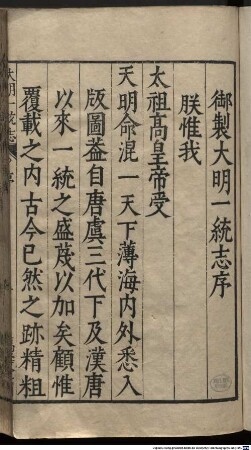 御製大明一統志序
朕惟我
太祖高皇帝受
天明命混一天下薄海内外悉入
版圖葢自唐虞三代下及漢唐
以來一統之盛蔑以加矣顧惟
覆載之内古今已然之跡精粗
大明一统志